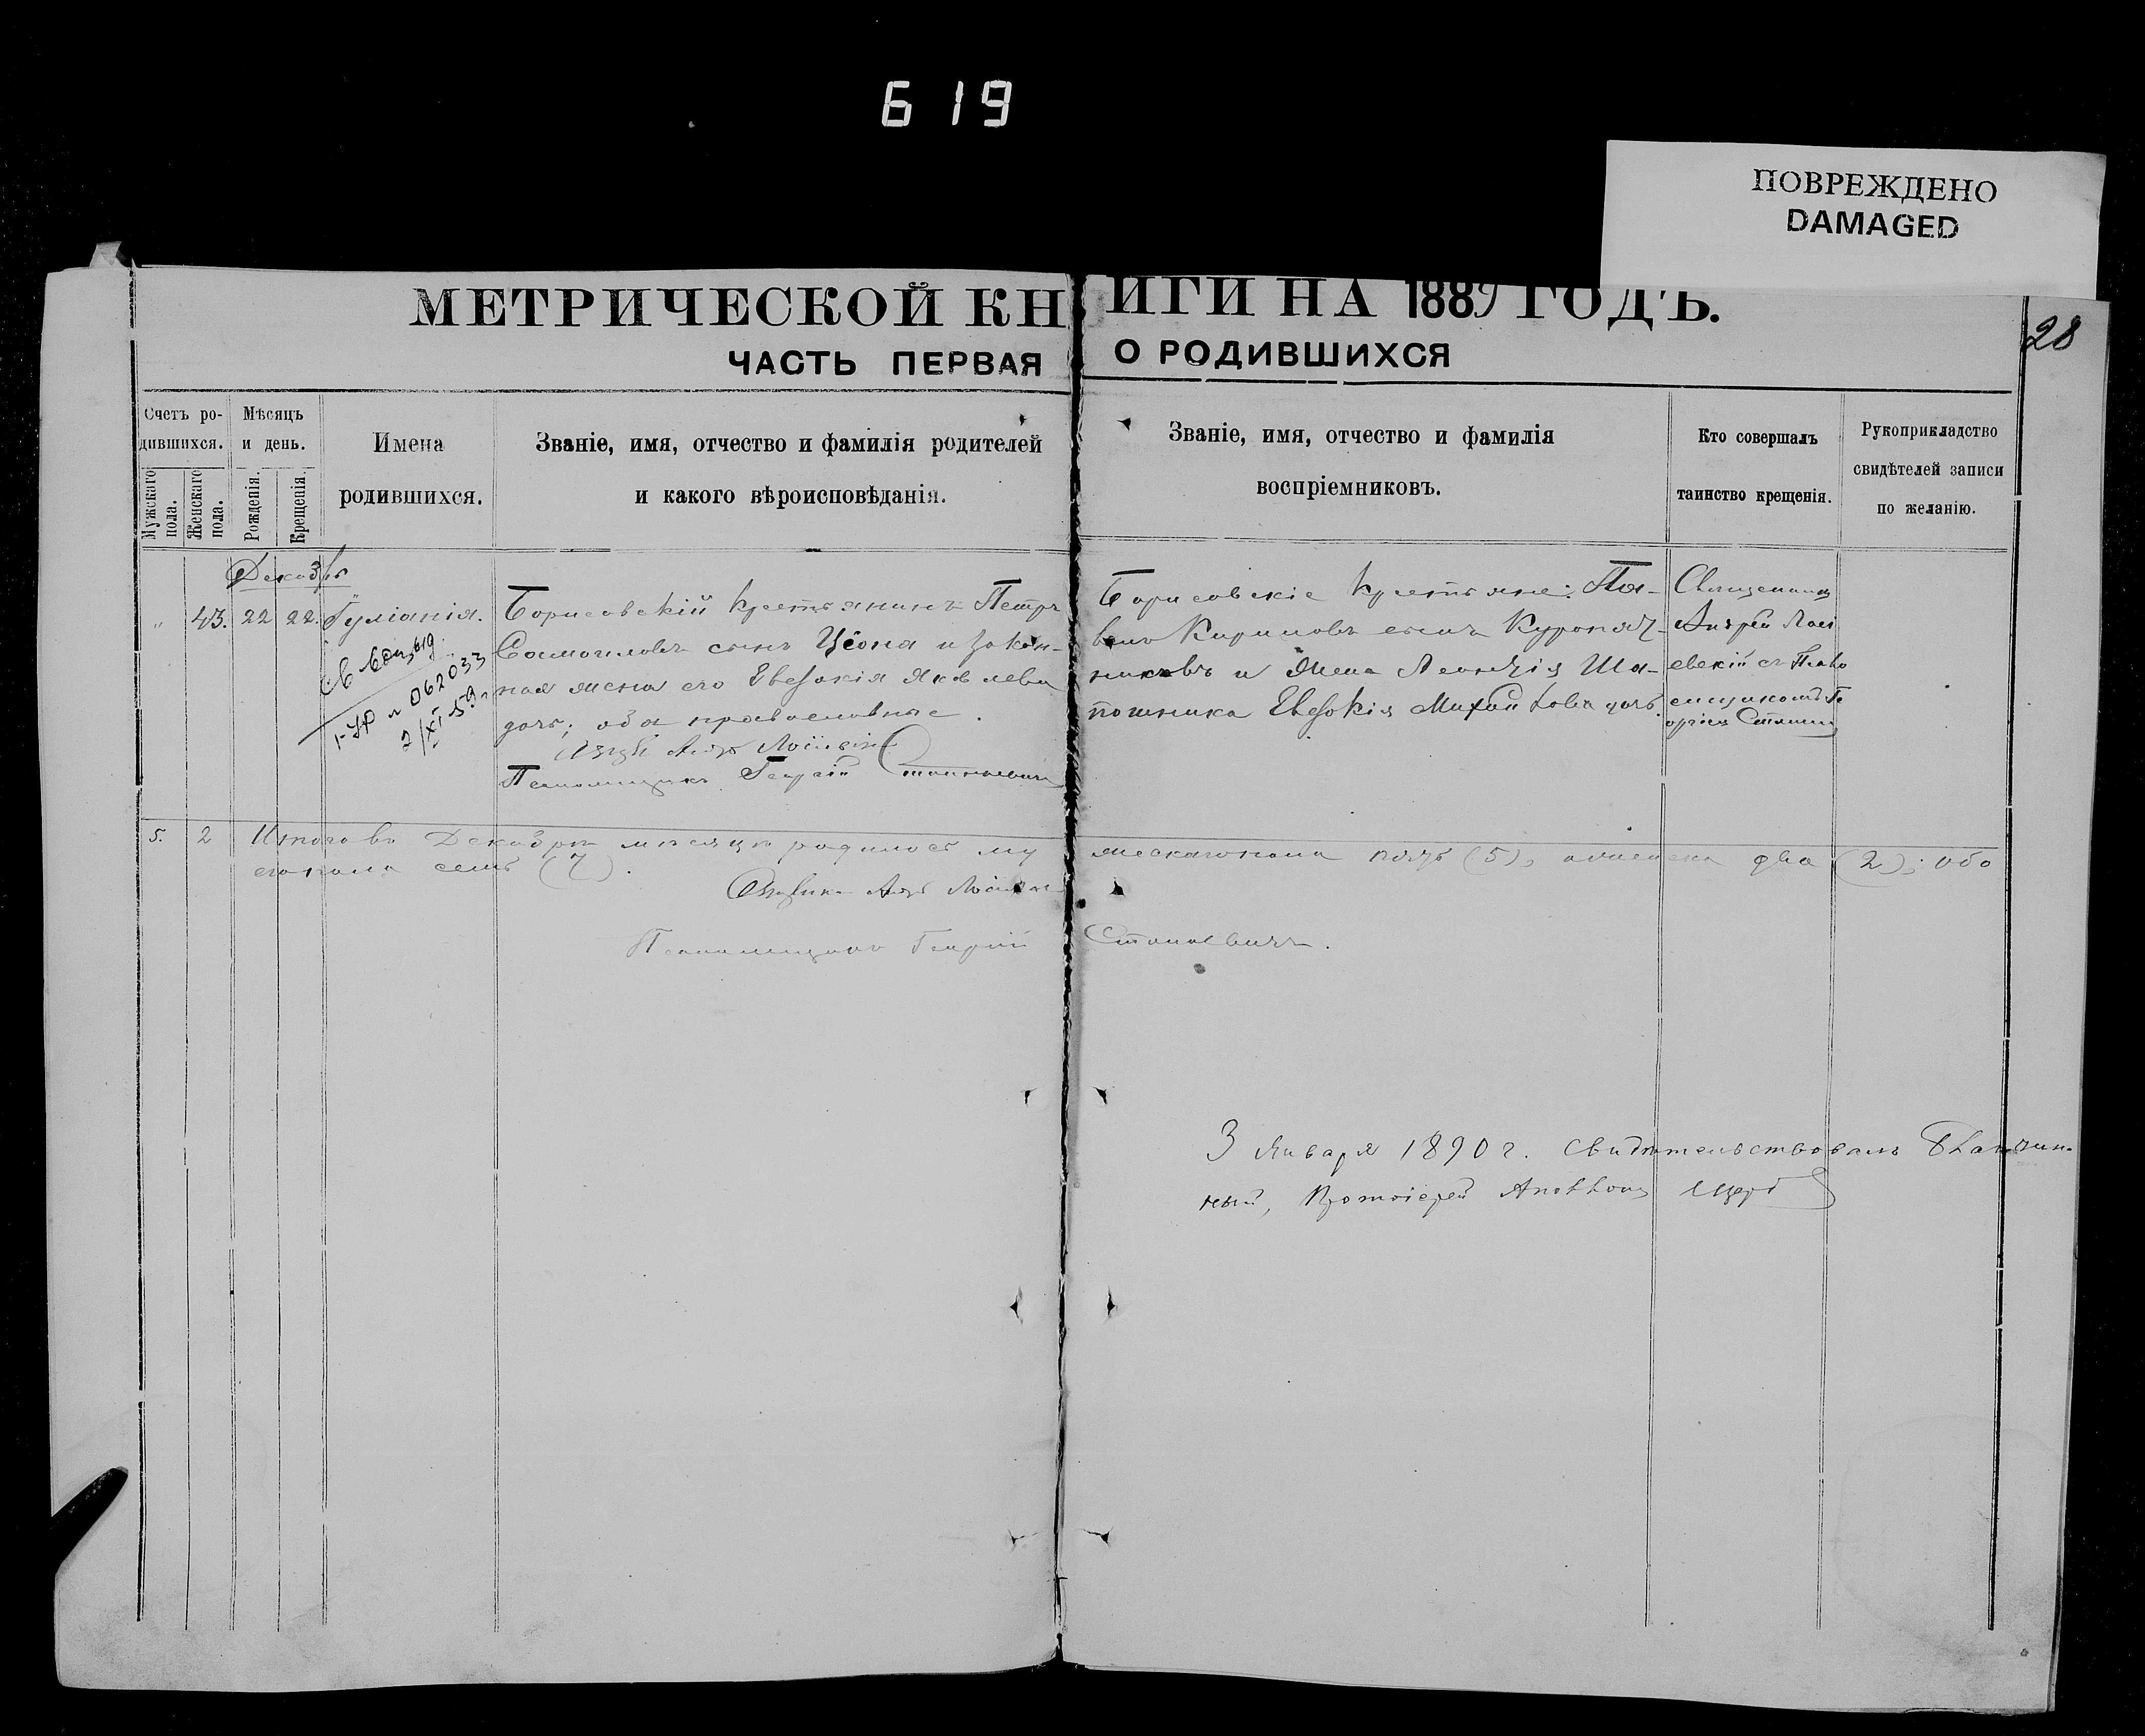 619
ПОВРЕЖДЕНО
DAMAGED
МЕТРИЧЕСКОЙ КНИГИ НА 1889 ГОДЪ.
28
ЧАСТЬ ПЕРВАЯ О РОДИВШИХСЯ
Счетъ ро-
дившихся.
Мужскаго пола.
Женскаго пола.
Мѣсяцъ
и день.
Рожденія.
Крещенія.
Имена
родившихся.
Званіе, имя, отчество и фамилія родителей
и какого вѣроисповѣданія.
Званіе, имя, отчество и фамилія
воспріемниковъ.
Кто совершалъ
таинство крещенія.
Рукоприкладство
свидѣтелей записи
по желанію.
Декабрь
„ 43. 22 22. Іуліанія.
062033
2/XI 59 г
Борисовскій крестьянинъ Петръ
Самоиловъ сынъ и закон-
ная жена его Евдокія Яковлева
дочь; оба православные.
Андр
Псаломщикъ Георгій Станкевичъ
Борисовскіе крестьяне: Па-
велъ Кириловъ сынъ
и жена Леонтія Ша-
пошника Евдокія Михайлова дочь.
Священникъ
Андрей
съ Псало
мщикомъ Ге
оргіемъ
5. 2 Итого въ Декабрѣ мѣсяцѣ родилось му жескаго пола пять (5), а женска два (2); обо
его пола семь (7).
Священникъ Андр
Псаломщикъ Георгій Станкевичъ.
3 Января 1890 г. Свидѣтельствовалъ Благочин-
ный, Протоіерей